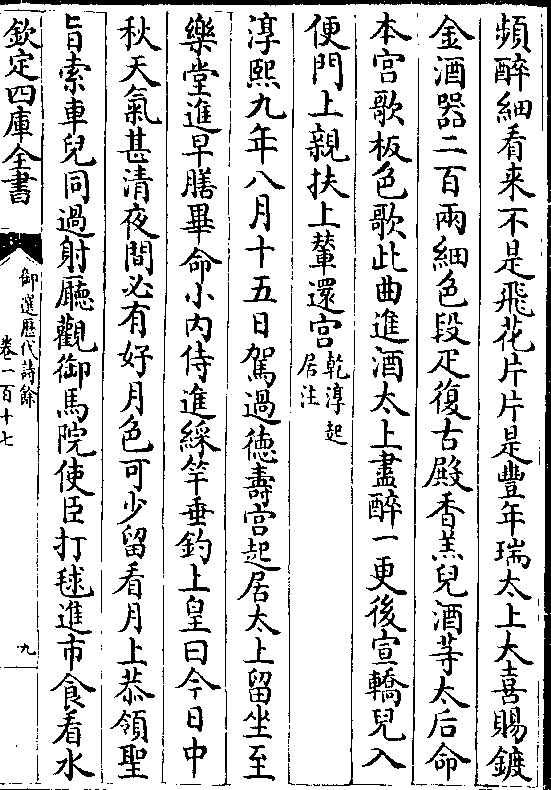 頻醉細看來不是飛花片片是豐年瑞太上大喜賜鍍
金酒器二百兩細色段疋復古殿香羔兒酒等太后命
本宮歌板色歌此曲進酒太上盡醉一更後宣轎兒入
便門上親扶上輦還宮乾淳起居注
淳熙九年八月十五日駕過德壽宮起居太上留坐至
樂堂進早膳畢命小內侍進綵竿垂釣上皇曰今日中
秋天氣甚清夜間必有好月色可少留看月上恭領聖
旨索車兒同過射廳觀御馬院使臣打毬進市食看水
欽定四庫全書
御選歷代詩餘
卷一百十七
九